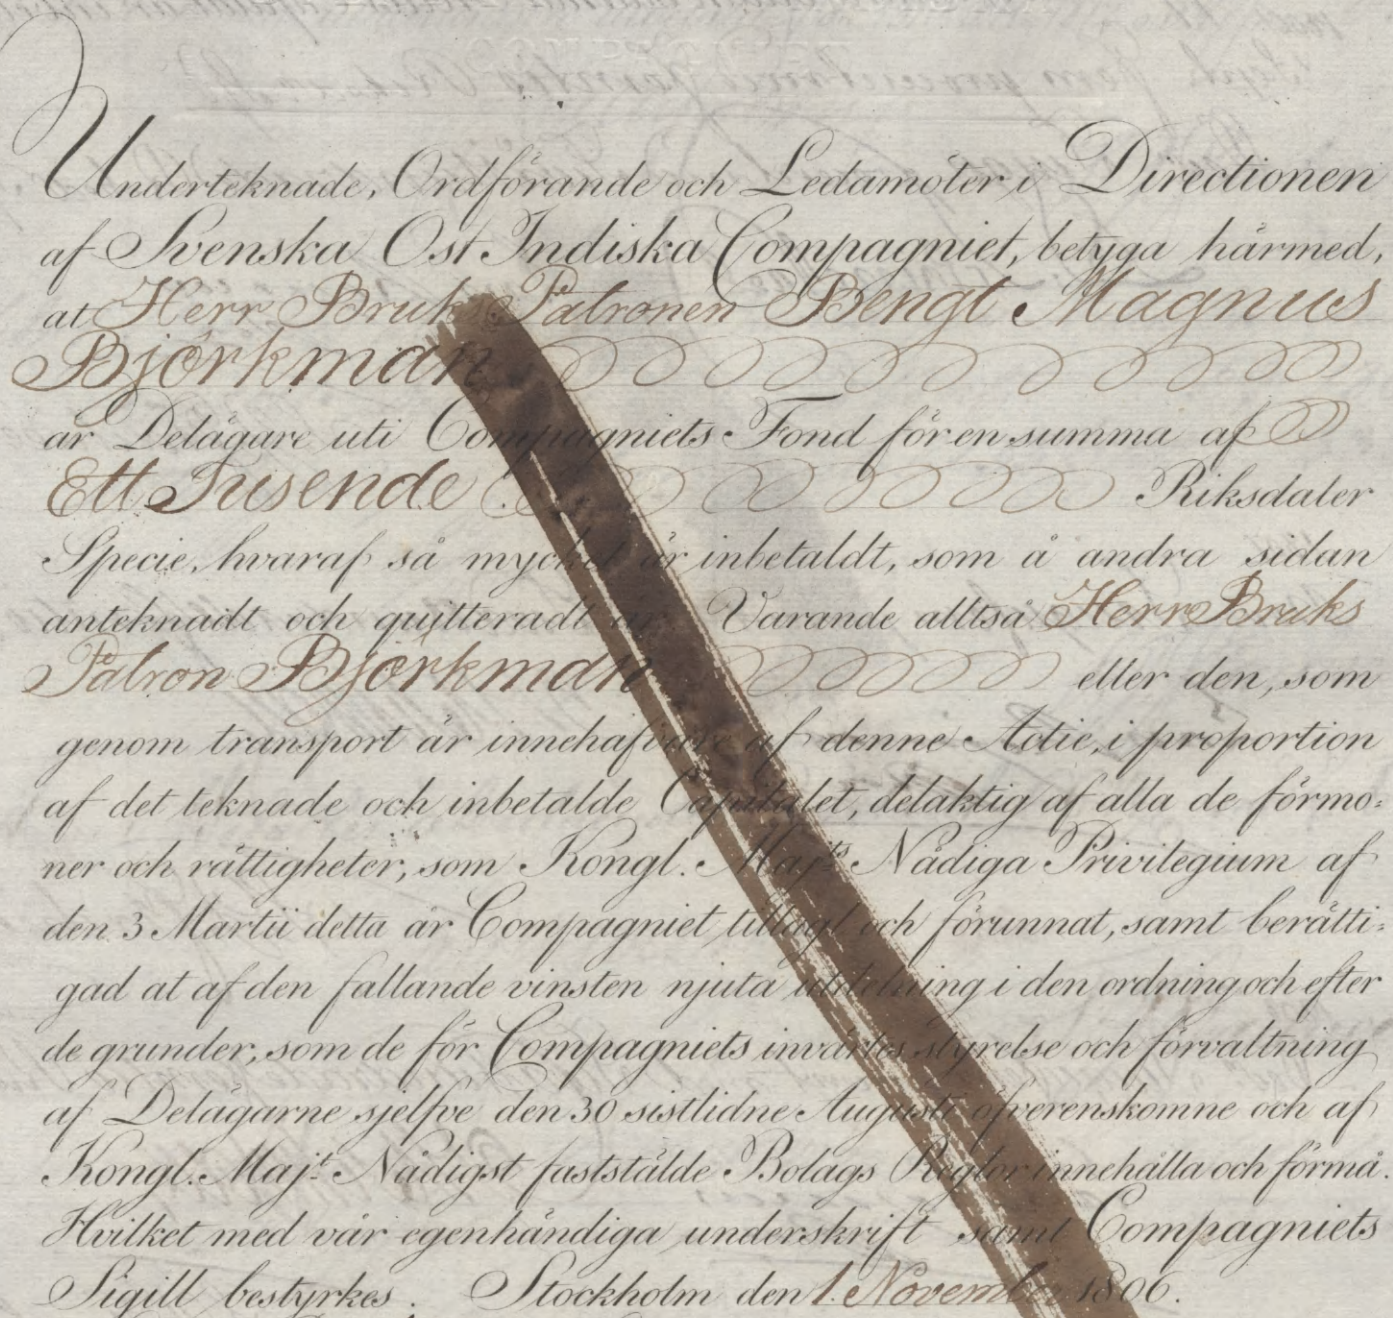 Underteknade, Ordförande och Ledamöter i Directionen
af Svenska Ost Indiska Compagniet, betyga härmed,
at Herr Bruks Patronen Bengt Magnus
Björkman
är Delägare uti Compagniets Fond för en summa af
Ett Tusende Riksdaler
Specie, hvaraf så mycket är inbetaldt, som å andra sidan
anteknadt och quitteradt är. Varande altså Herr Bruks
Patron Björkman eller den, som
genom transport är innehafvare af denne Actie, i proportion
af det teknade och inbetalde Capitalet, delaktig af alla de förmo=
ner och rättigheter, som Kongl. Majts Nådiga Privilegium af
den 3 Martii detta år Compagniet tillagt och förunnat, samt berätti=
gad at af den fallande vinsten njuta utdelning i den ordning och efter
de grunder, som de för Compagniets invärtes styrelse och förvaltning
af Delägarne sjelfve den 30 sistlidne Augusti öfverenskomne och af
Kongl. Majt Nådigst fastställde Bolags Reglor innehålla och förmå.
Hvilket med vår egenhändiga underskrift samt Compagniets
Sigill bestyrkes. Stockholm den 1. November 1806.